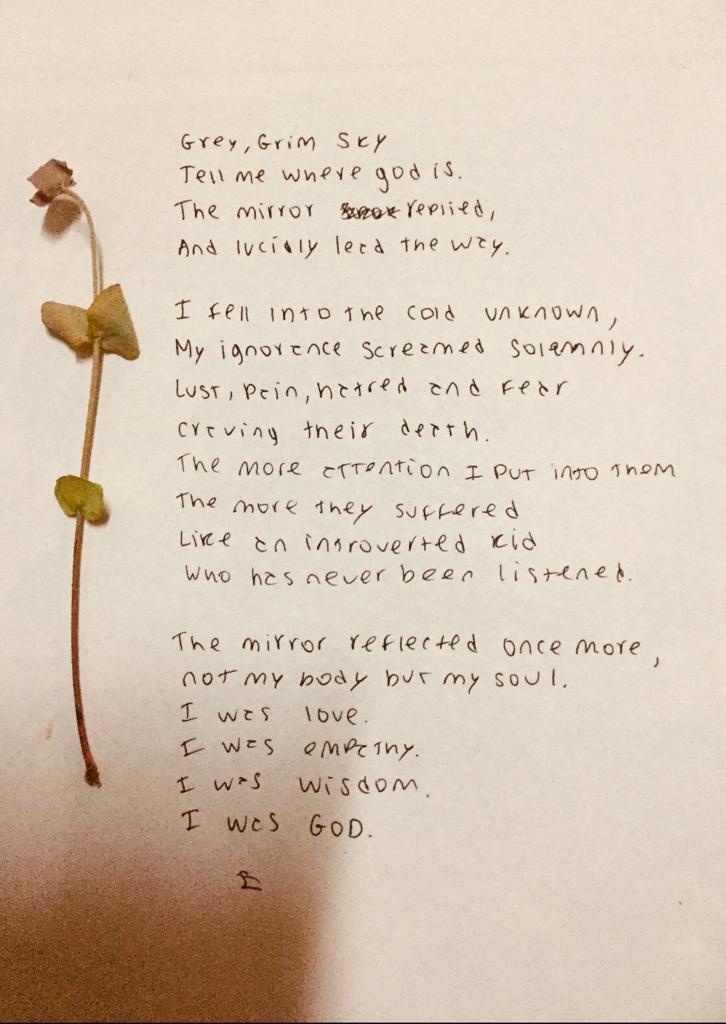 Grey, Grim Sky
Tell me where god is.
The mirror replied,
And lucidly lead the way.
I fell into the cold unknown,
My ignorance screamed solemnly.
Lust, pain, hatred and fear
craving their death.
The more attention I put into them
The more they suffered
Like an introverted kid
Who has never been listened.
The mirror reflected once more,
not my body but my soul.
I was love.
I was empathy.
I was wisdom.
I was GOD.